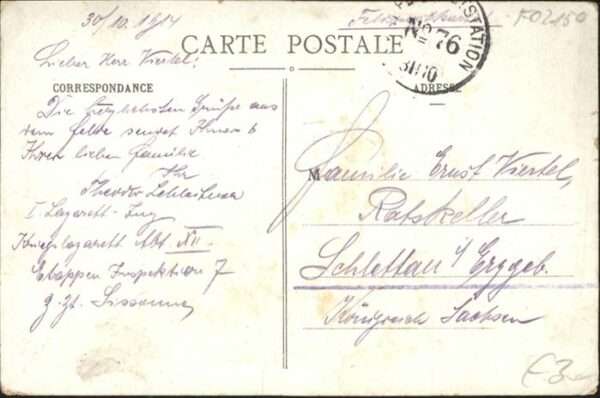 30/10. 1914
Feldpostkarte
F02150
STATION
No 76
31 10
CARTE POSTALE
Lieber Herr Viertel!
CORRESPONDANCE
ADRESSE
Die herzlichsten Grüße aus
dem Felde sendet Ihnen &
Ihrer lieben Familie
Ihr
Theodor
I. Lazarett-Zug
Kriegslazarett Abt. XII.
Etappen Inspektion 7
z. Zt. Sissonne
M
Familie Ernst Viertel,
Ratskeller
Schlettau i/ Erzgeb.
Königreich Sachsen
€3